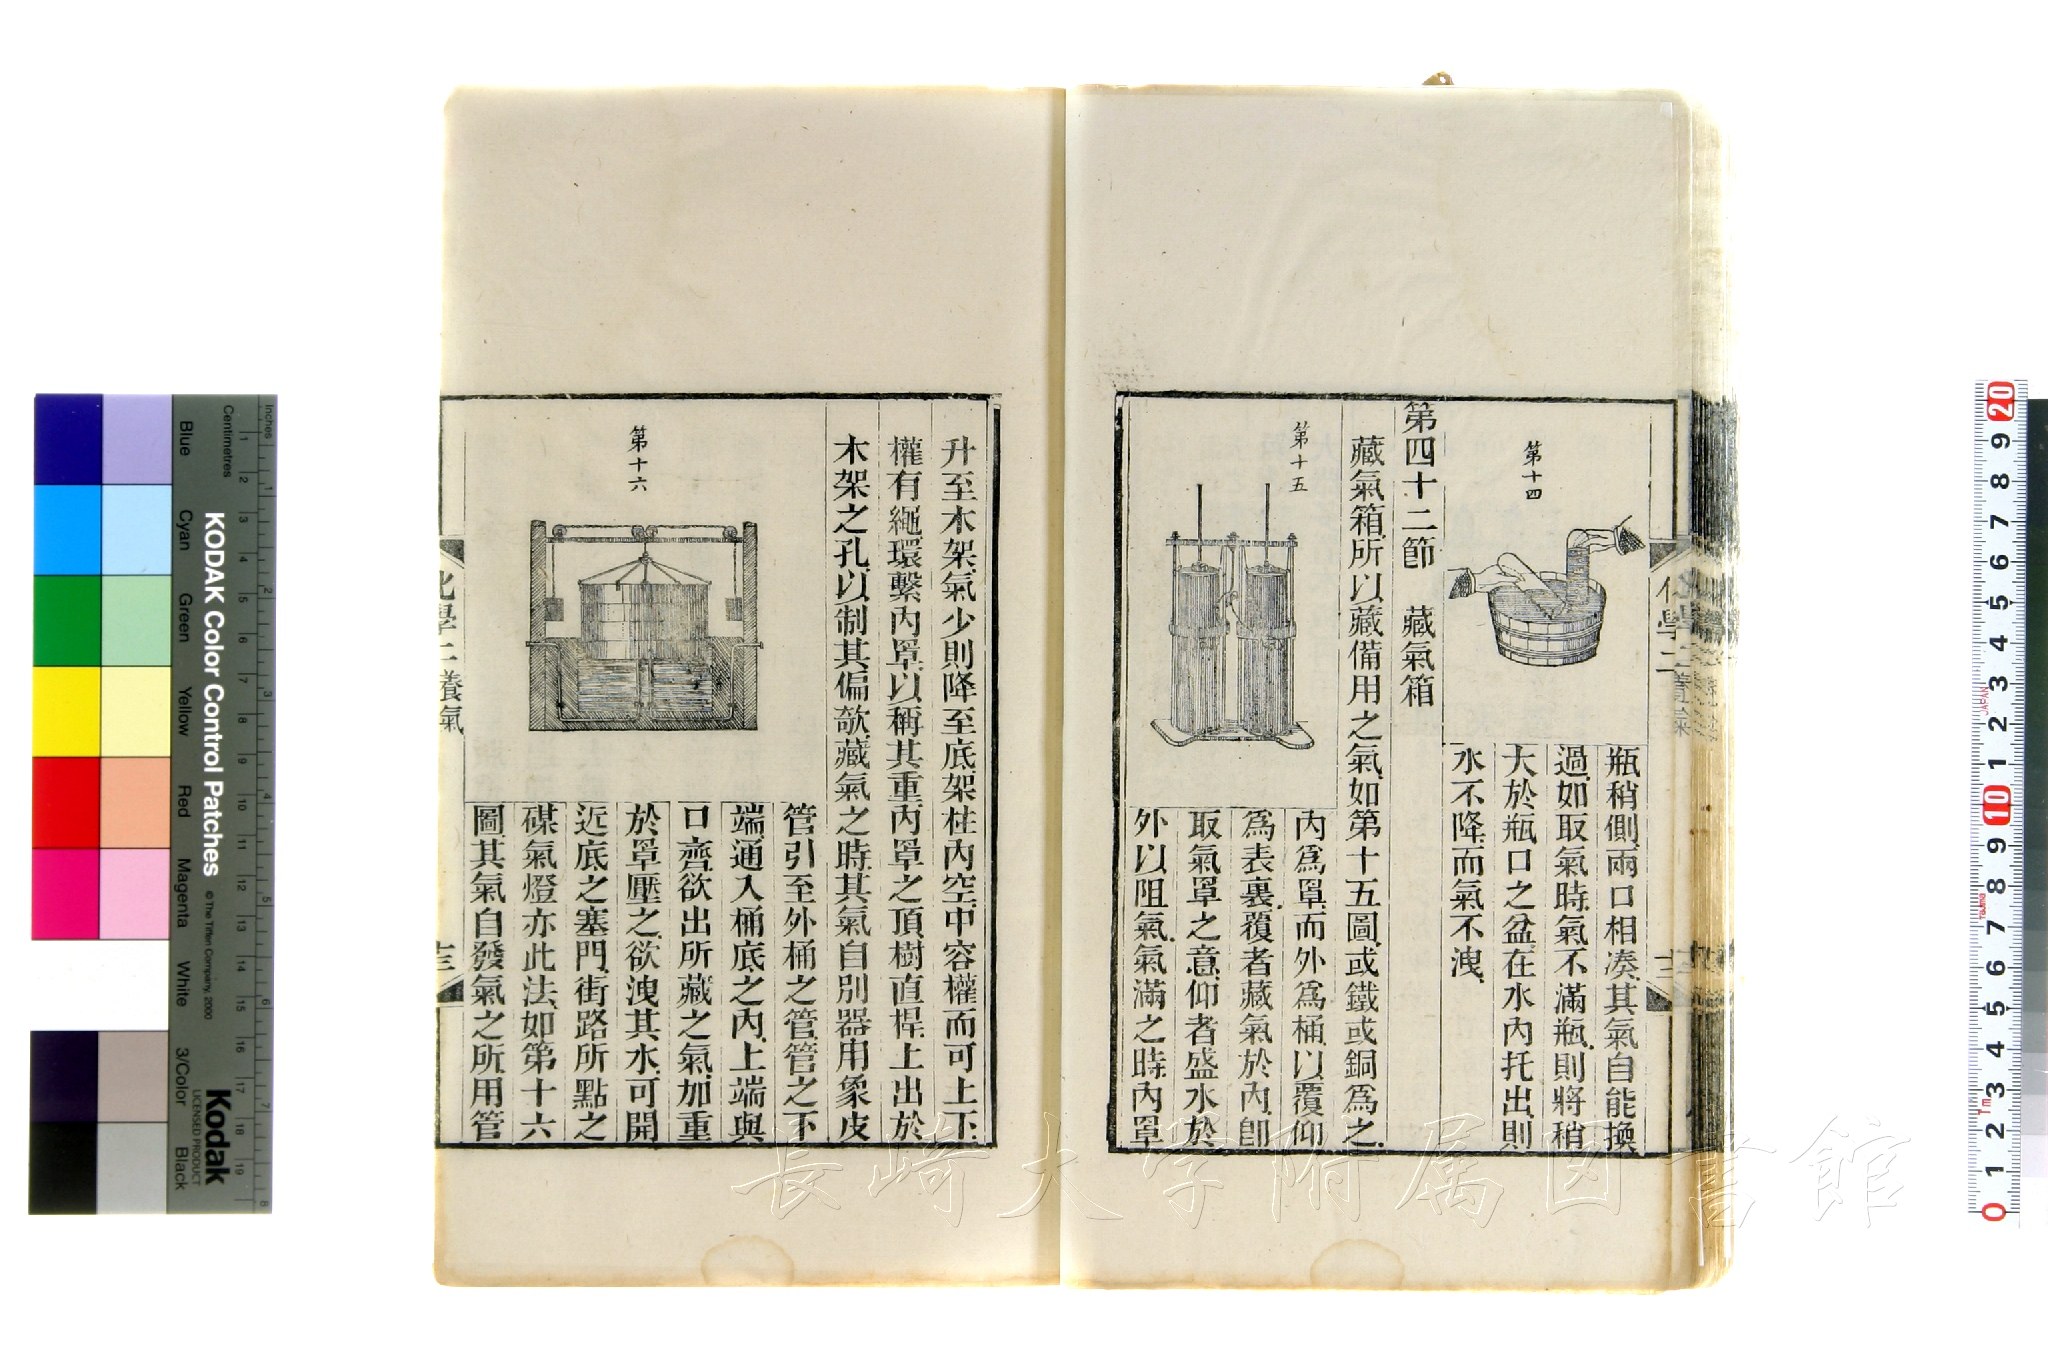 第十四
瓶稍側、兩口相凑、其氣自能換
過、如取氣時、氣不滿瓶、則將稍
大於瓶口之盆、在水內托出、則
水不降、而氣不洩、
第四十二節　藏氣箱
藏氣箱、所以藏備用之氣、如第十五圖、或鐵或銅爲之、
第十五
內爲罩、而外爲桶、以覆仰
爲表裏、覆者藏氣於內、卽
取氣罩之意、仰者盛水於
外、以阻氣、氣滿之時、內罩
化學二 養氣
十二
升至木架、氣少則降至底、架柱內空、中容權而可上下、
權有繩、環繫內罩、以稱其重、內罩之頂、樹直桿、上出於
木架之孔、以制其偏欹、藏氣之時、其氣自別器用象皮
第十六
管引至外桶之管、管之下
端通入桶底之內、上端與
口齊、欲出所藏之氣、加重
於罩壓之、欲洩其水、可開
近底之塞門、街路所點之
碟氣燈、亦此法、如第十六
圖、其氣自發氣之所、用管
化學二 養氣
十三
長崎大学附属図書館
KODAK Color Control Patches
© The Tiffen Company, 2000
Kodak
LICENSED PRODUCT
Inches
Centimetres
Blue
Cyan
Green
Yellow
Red
Magenta
White
3/Color
Black
1 2 3 4 5 6 7 8
1 2 3 4 5 6 7 8 9 10 11 12 13 14 15 16 17 18 19
0 1 2 3 4 5 6 7 8 9 10 1 2 3 4 5 6 7 8 9 20
JAPAN
Tajima
1m